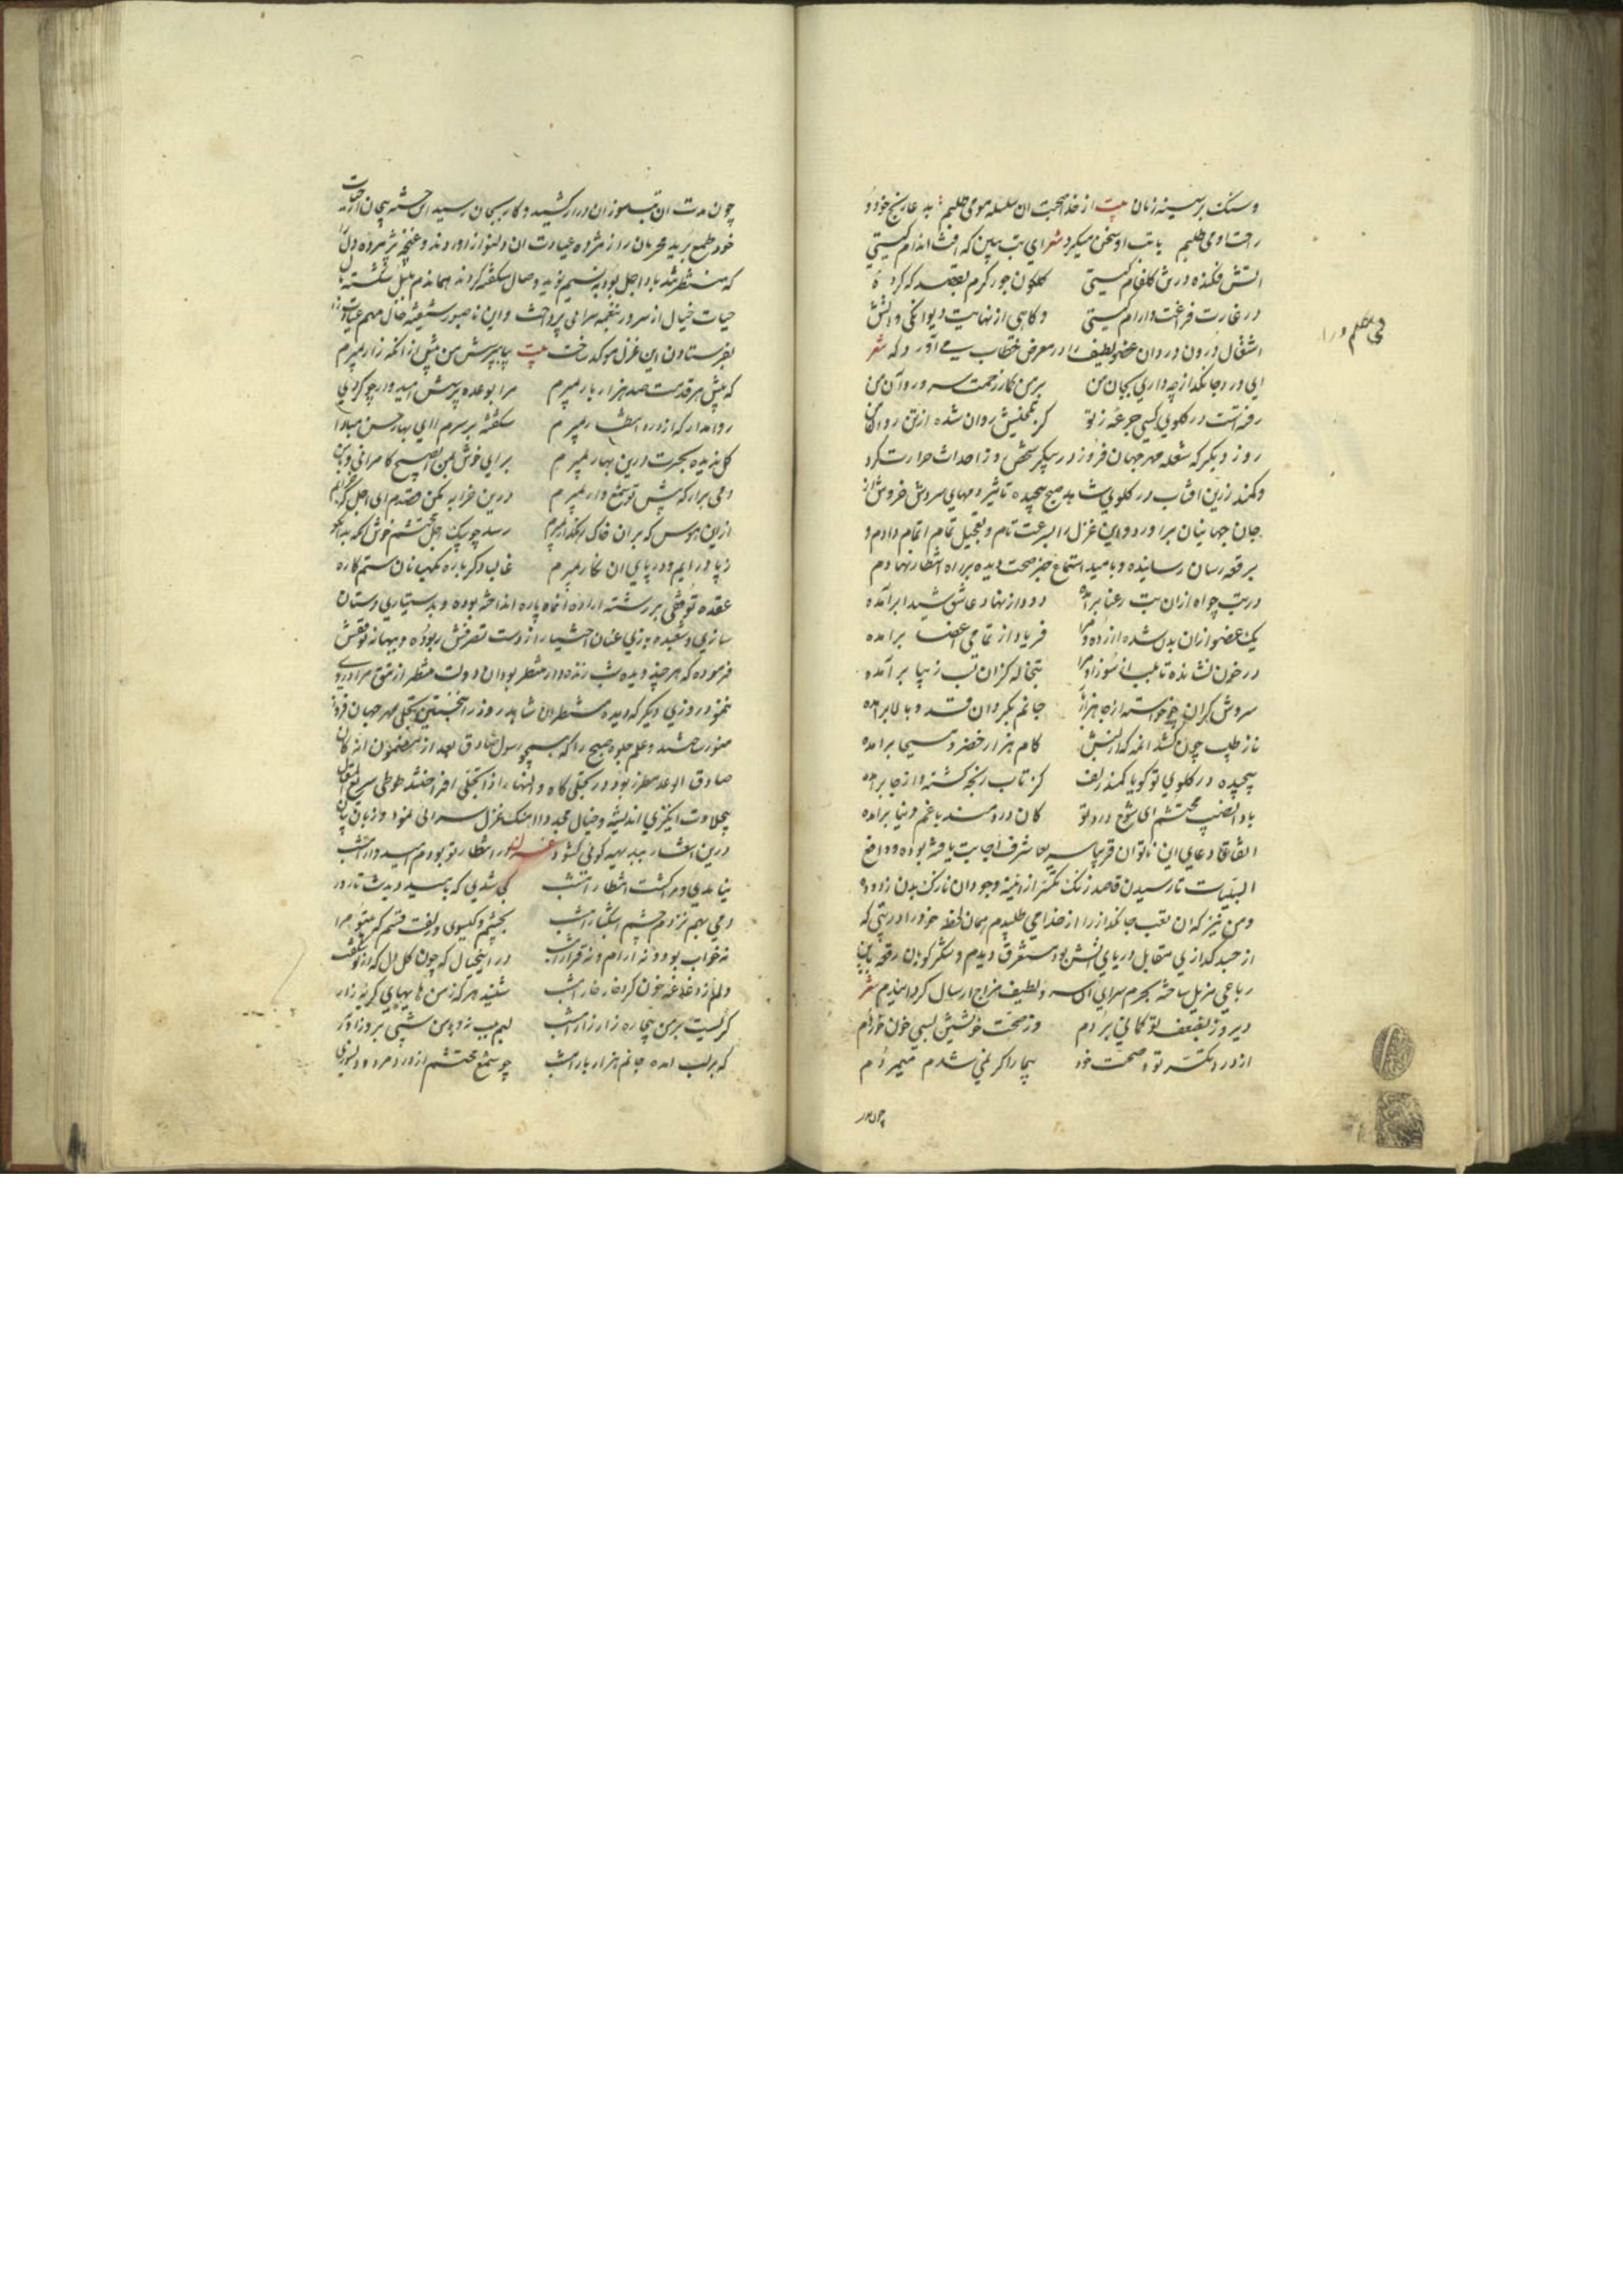 وسنک بر سینه زنان بیت از خدا صحبت ان سلسله مو می طلبم
راحت او می طلبم با تب او سخن میکرد شعر ای تب ببین که افت اندام کیستی
اتش فکنده در تن کلفام کیستی کلکون جور کرم بقصد که کرده
در غارت فراغت وارام کیستی وکاهی از نهایت دیوانکی واتش
اشتعال درون در دان عضو لطیف را در معرض خطاب می آورد که شعر
ای درد جانکداز چه داری بجان من بر من کمار زحمت سرو روان من
رفتست در کلوی کسی جرعه ز تو کز تلخیش روان شده از تن روان من
روز دیکر که شعله مهر جهان فروز در پیکر شخص وز احداث حرارت کرد
وکمند زرین افتاب در کلوی شاهد صبح پیچیده تاثیر دمهای سردش خروش از
جان جهانیان براورد واین غزل را بسرعت تام و تعجیل تمام اتمام دادم و
برقعه رسان رسانیده وبامید استماع خبر صحت دیده بر راه انتظار نهادم
در تب چو اه ازان بت رعنا برآمده دود از نهاد عاشق شیدا برآمده
یک عضو ازان بدن شده ازرده و مرا فریاد از تمامی اعضا برامده
در خون نشانده تا بلب از سوز او مرا تبخاله کزان لب زیبا برآمده
سروش کران چو خواسته از جا هزار جانم بکرد ان قد و بالا برامده
ناز طبیب چون کشد انمه که از لبش کام هزار خضر و مسیحا برامده
پیچیده در کلوی تو کویا کمند زلف کز تاب رنجه کشته واز جا برامده
بادا نصیب محتشم ای شوخ درد تو کان دردمند با غم دنیا برامده
اتفاقا دعای این ناتوان قریبا سریعا شرف اجابت یافته بوده ودافع
البلیات تا رسیدن قاصد زنک تکسر از اینه وجود ان نازک بدن زدوده
ومن نیز که ان تعب جانکداز را از خدا می طلبیدم همان لحظه خود را در تبی که
از جسد کدازی مقابل دریای اتش بود مستغرق دیدم وشکر کویان رقعه باین
رباعی مزیل ساخته بحرم سرای ان سرو لطیف مزاج ارسال کردانیدم شعر
دیروز بضعف تو کمانی بردم وز صحت خویشتن بسی خون خوردم
از درد تکسر تو وصحت خود بیمار اکر نمی شدم میمردم
چون مدت
چون مدت ان تب سوزان دراز کشید وکار بجان رسید این خسته بیجان از حیات
خود طمع برید محرمان روز مژده عیادت ان دلنواز اوردند وغنچه پژمرده دل را
که منتظر تند باد اجل بود به نسیم نوید وصال شکفته کردند هماندم بلبل شکسته بال
حیات خیال از سرور نغمه سرائی پرداخت واین ناصبور شیفته خال مهم عیادت را
بفرستادن این غزل موکد ساخت بیت بیا بپرسش من پیش از انکه زار بمیرم
که پیش هر قدمت صد هزار بار بمیرم مرا بوعده پرسش امیدوار چو کردی
روا مدار که از درد انتظار بمیرم شکفته بر سرم اای بهار حسن مبادا
کل ندیده بحسرت درین بهار بمیرم برای خوش بمن ای صبح کامرانی وبامن
دمی برار که پیش تو شمع وار بمیرم درین خرابه بمکن قصدم ای اجل که
ازین هوس که بران خاک رهکذار بمیرم رسد چو پیک اجل محتشم خوش انکه
ز پا درایم ودر پای ان نکار بمیرم غالبا دکر باره نکهبانان ستم کاره
عقده توقفی بر رشته اراده انماه پاره انداخته بوده وبدستیاری دستان
سازی و شعبده بازی عنان اختیار از دست تصرفش ربوده وببهانه توقفش
فرموده که هر چند دیده شب زنده دار منتظر بود ان دولت منتظر از شق مراد روی
ننمود روزی دیکر که دیده منتظران شاهد روز را نخستین تجلی مهر جهان فروز
منور ساختند وعلم جلوه صبح را که همچو رسول صادق بعد از مضمون انه کان
صادق الوعد مطرز بود در تجلی کاه والنهار اذا تجلی افراختند طوطی سریع المقال
بحلاوت انکیزی اندیشه وخیال مجددا اهنک غزل سرائی نمود وزبان بیان
درین اشعار ببدیهه کوئی کشود غزل در انتظار تو بودم امیدوار امشب
نیامدی ومرا کشت انتظار امشب کی شدی که بامید دیدنت تا روز
دمی بهم نزدم چشم اشکبار امشب بچشم وکیسوی وزلفت قسم که بیتو مرا
نه خواب بود ونه ارام ونه قرار امشب در اینخیال که چون کل دل که از تو شکفت
دلم ز دغدغه خون کرد خار خار امشب شنید هر که ز من هایهای کریه زار
کریست بر من بیچاره زار زار امشب لبم بیب نه وبا من شبی بروز اور
که بر لب امده جانم هزار بار امشب چو شمع محتشم از درد مرد ودلسوزی